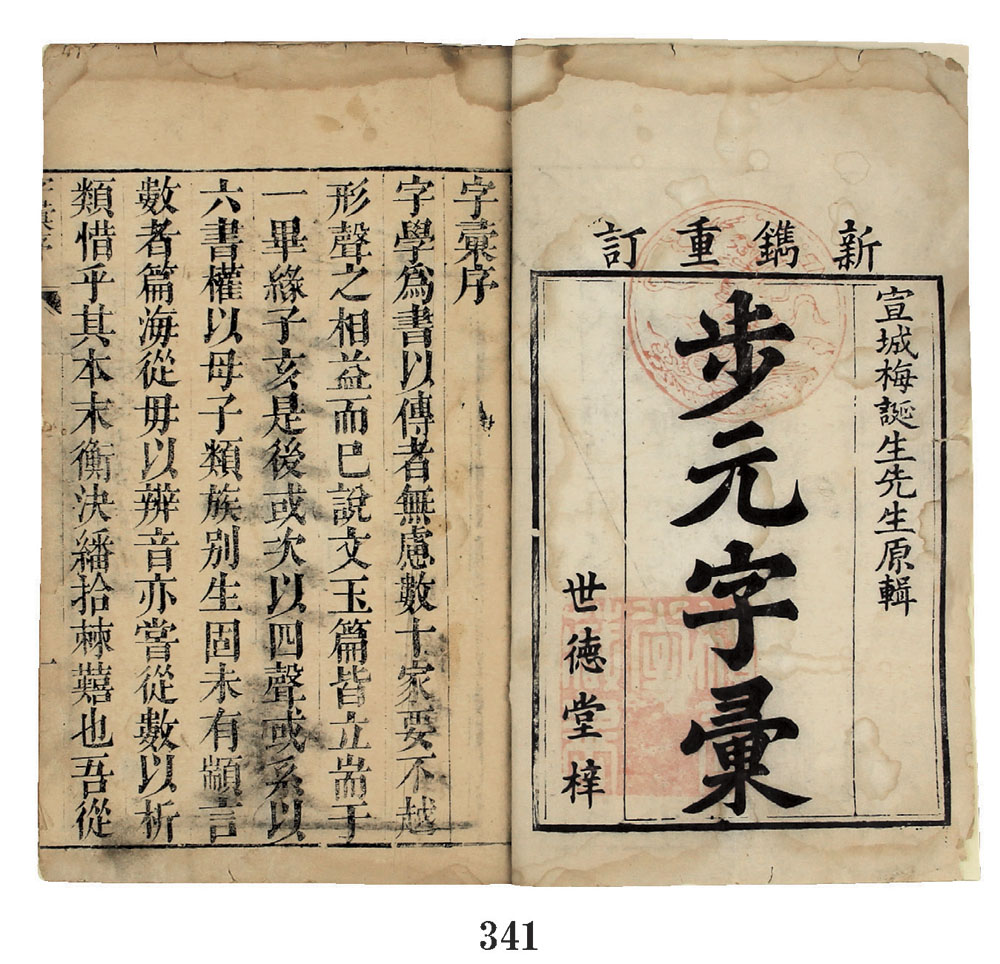 新鐫重訂
宣城梅誕生先生原輯
步元字彙
世德堂梓
字彙序
字學為書以傳者無慮數十家要不越
形聲之相益而已說文玉篇皆立耑于
一畢緣子亥是後或次以四聲或系以
六書權以母子類族別生固未有顓言
數者篇海從毋以辨音亦嘗從數以析
類惜乎其本末衡決繙拾棘囏也吾從
341